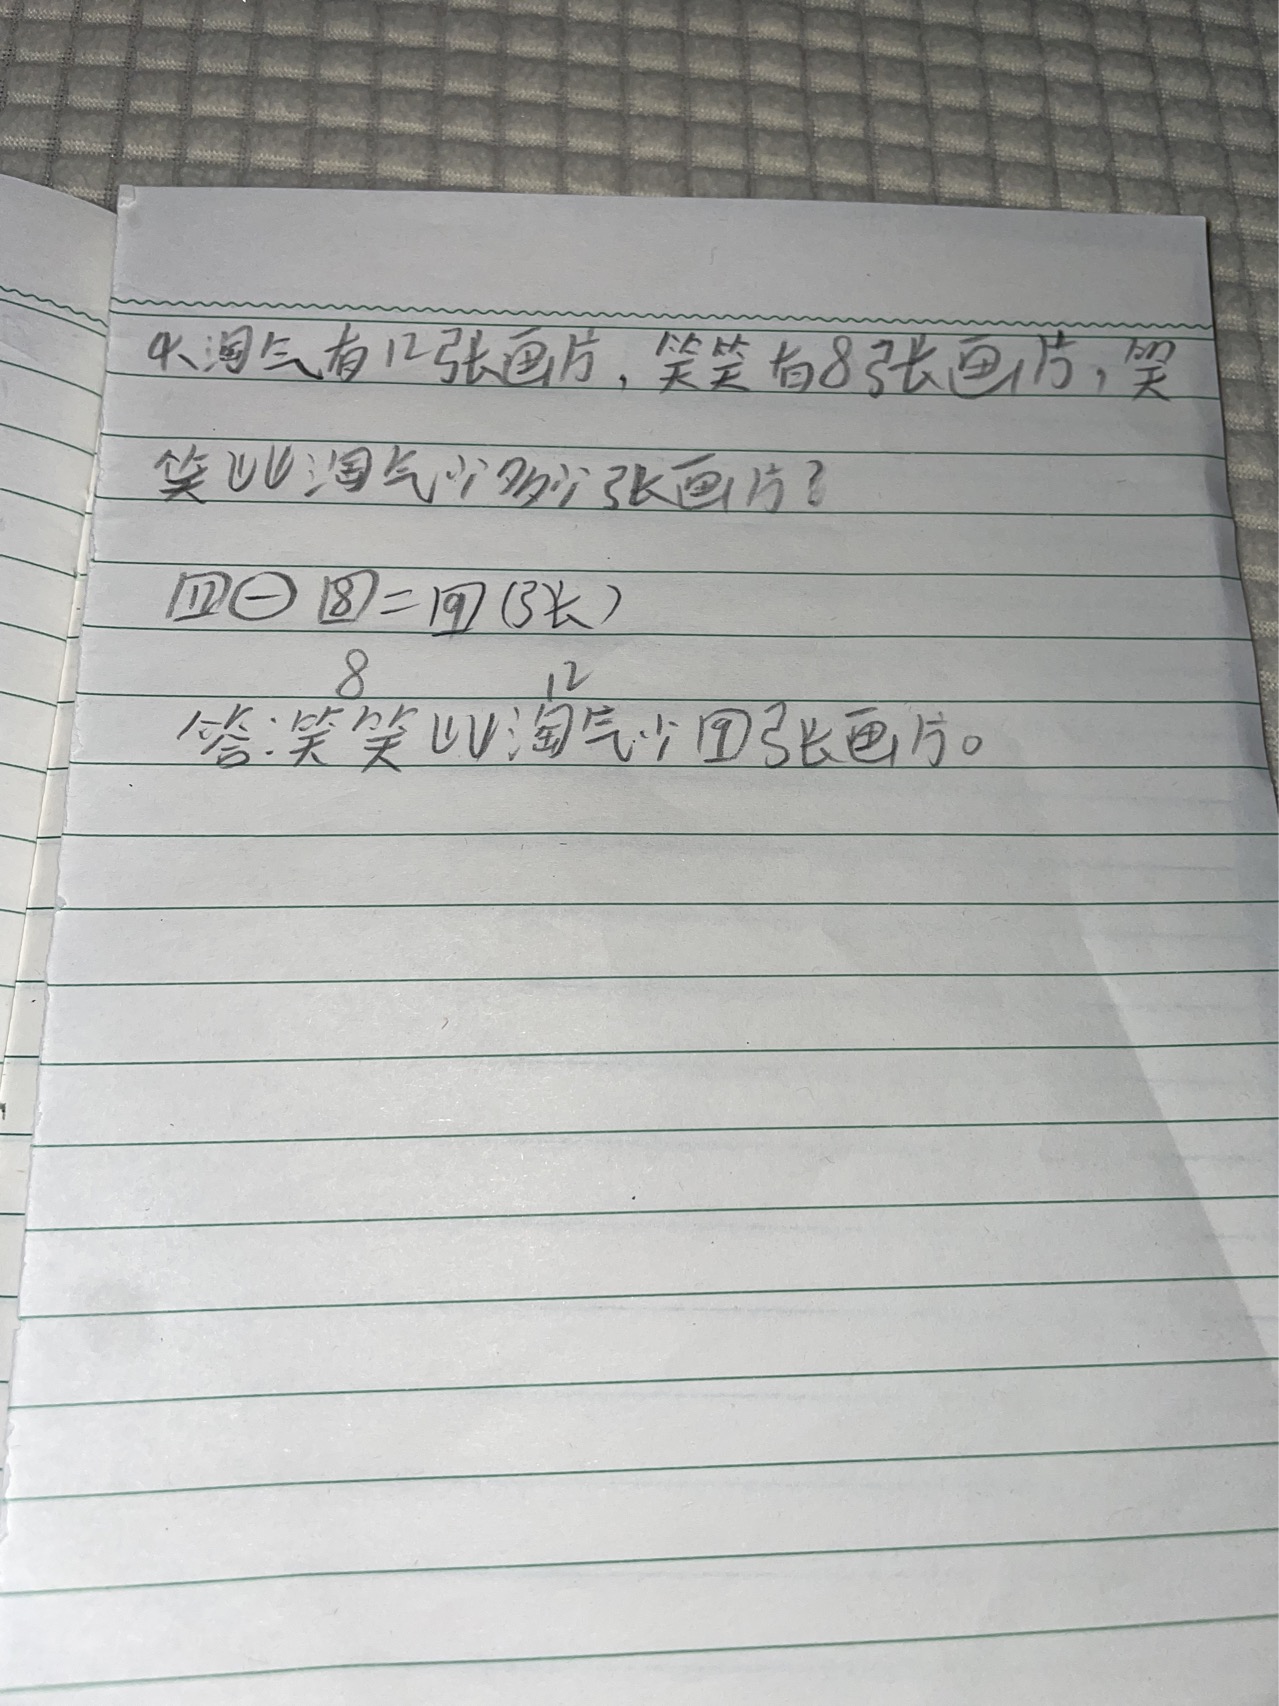 4、淘气有12张画片，笑笑有8张画片，笑
笑比淘气少多少张画片？
17-8=9(张)
8 12
答:笑笑比淘气少9张画片。